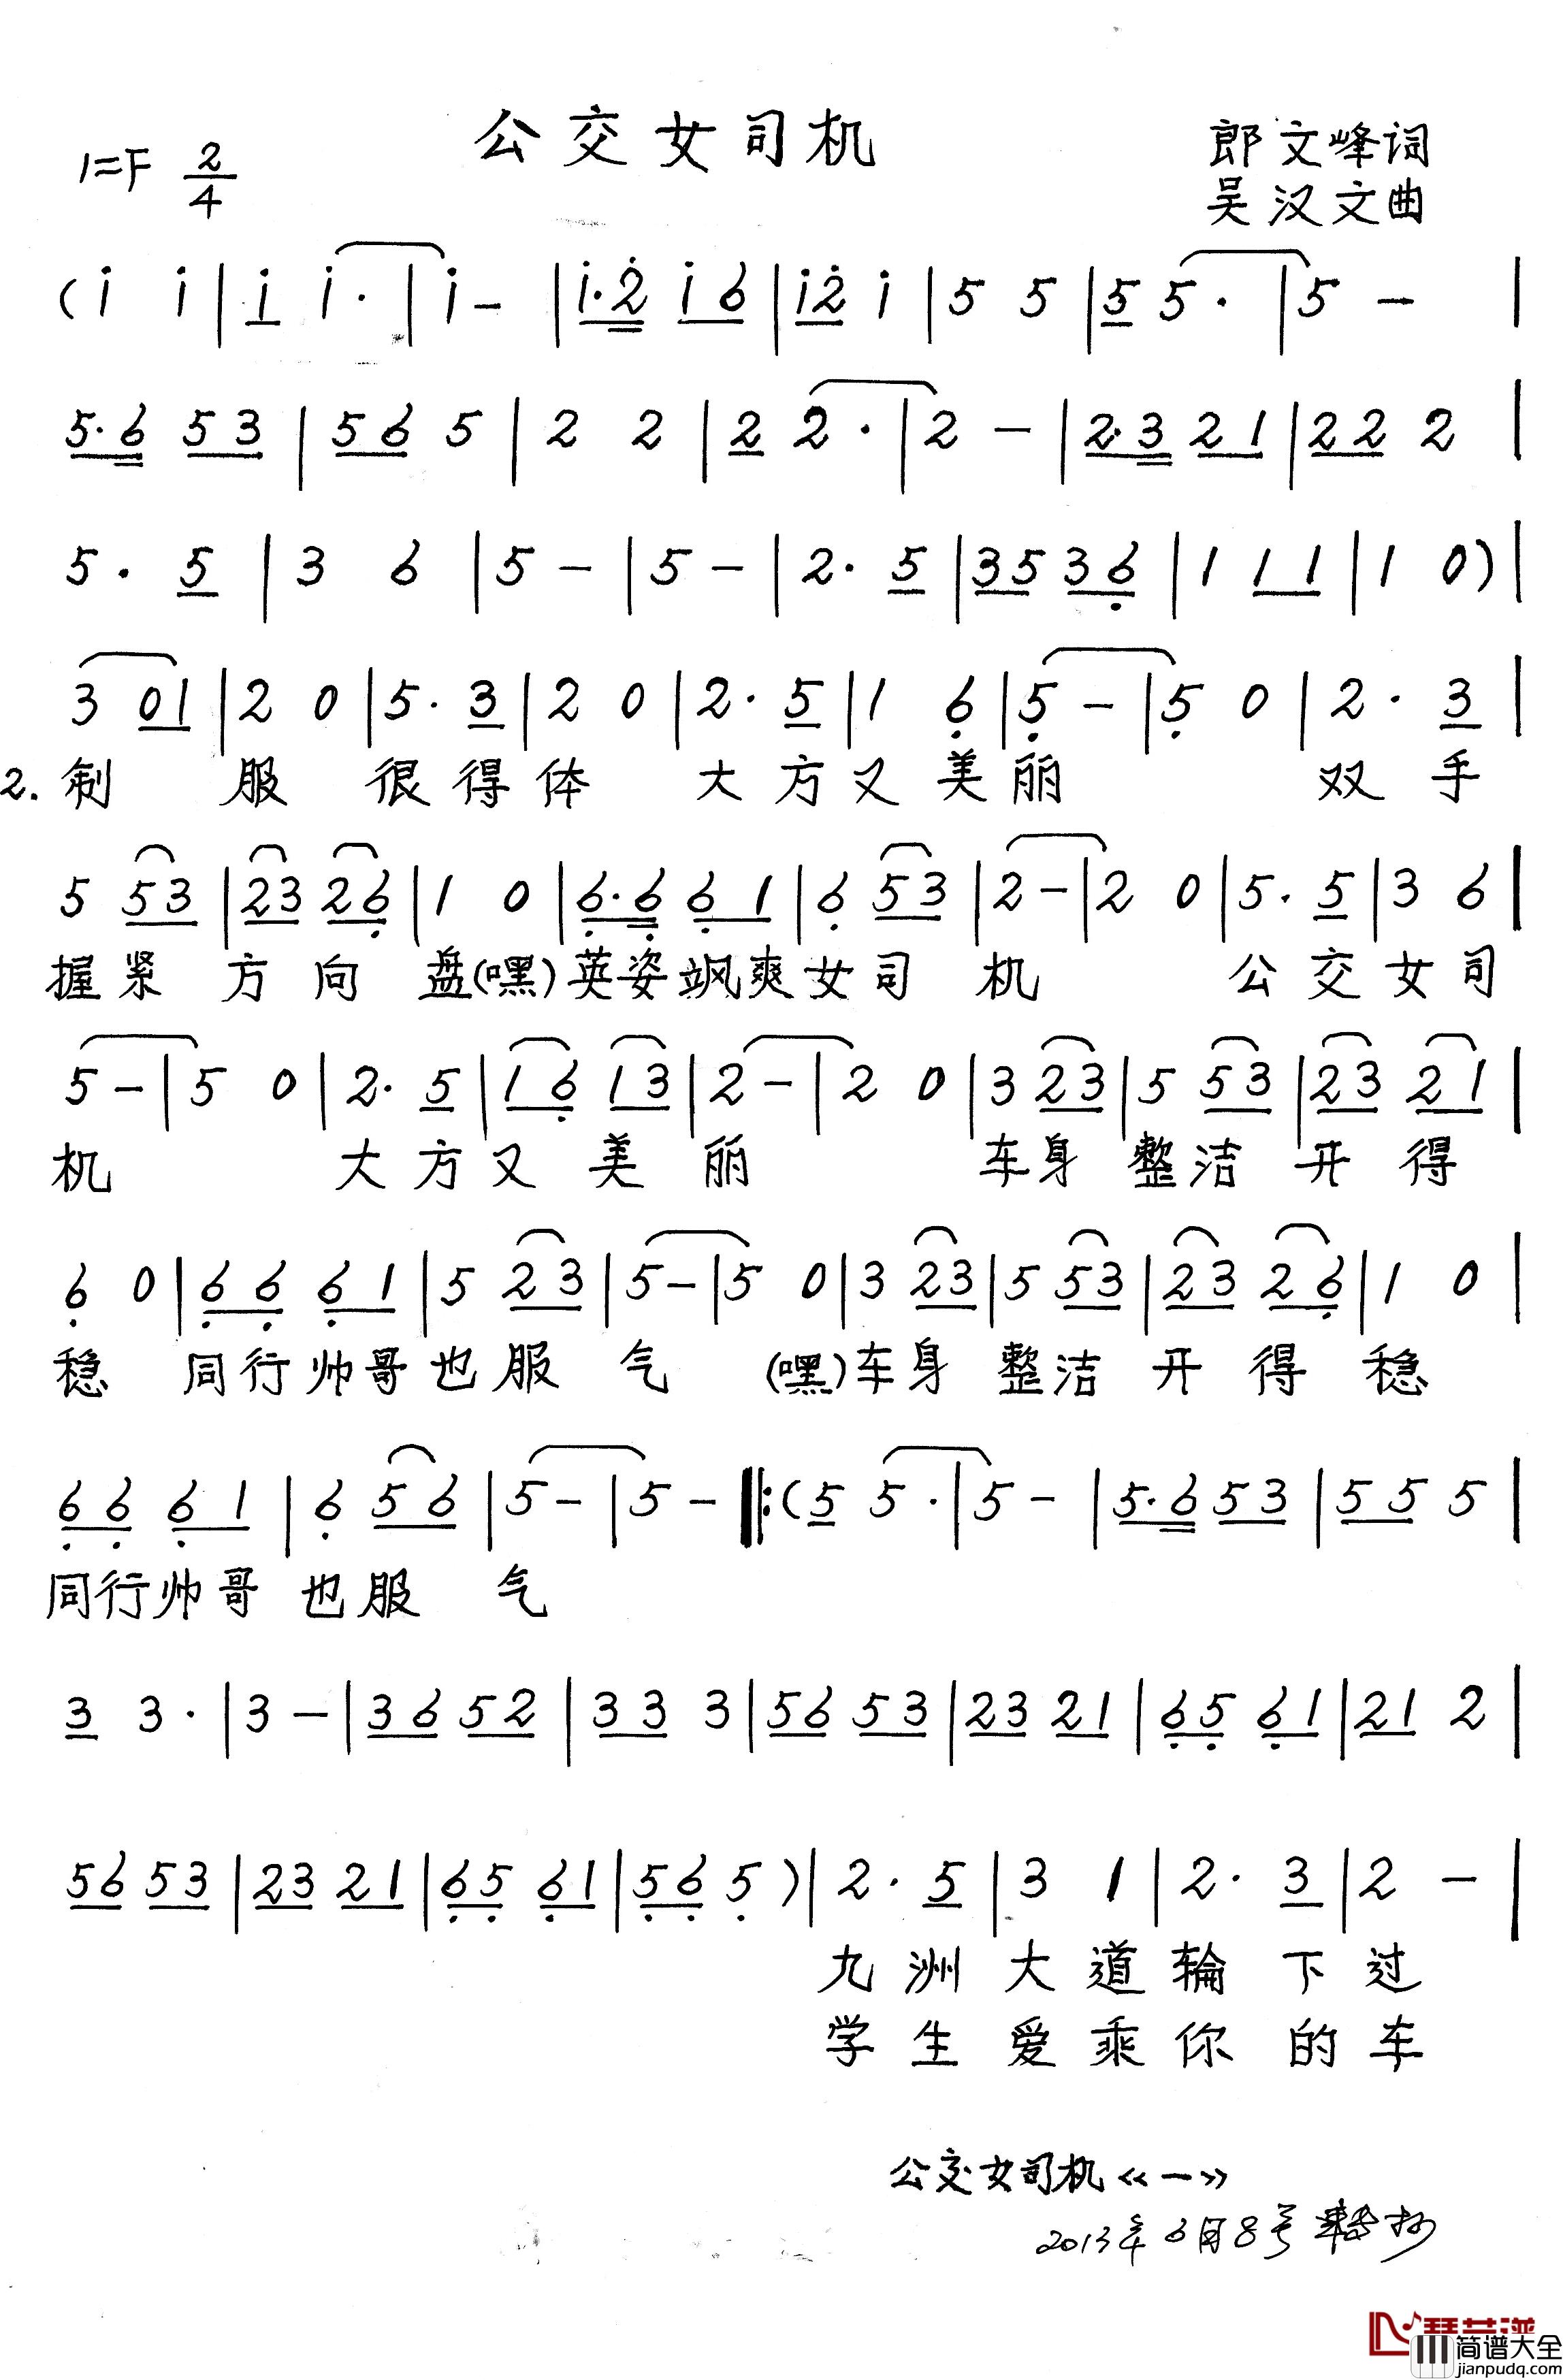 公交女司机
1=F 2/4
郎文峰词
吴汉文曲
(i i | i i· | i – | i·2 i 6 | i2 i | 5 5 | 5 5· | 5 – |
5·6 53 | 56 5 | 2 2 | 2 2· | 2 – | 2·3 21 | 22 2 |
5· 5 | 3 6 | 5 – | 5 – | 2· 5 | 35 36 | 1 1 1 | 1 0) |
3 01 | 2 0 | 5· 3 | 2 0 | 2· 5 | 1 6 | 5 – | 5 0 | 2· 3 |
2. 制 服 很得体 大方又美丽 双手
5 53 | 23 26 | 1 0 | 6·6 61 | 6 53 | 2 – | 2 0 | 5· 5 | 3 6 |
握紧 方向 盘(嘿)英姿飒爽女司 机 公交女司
5 – | 5 0 | 2· 5 | 16 13 | 2 – | 2 0 | 3 23 | 5 53 | 23 21 |
机 大方又美丽 车身整洁开得
6 0 | 66 61 | 5 23 | 5 – | 5 0 | 3 23 | 5 53 | 23 26 | 1 0 |
稳 同行帅哥也服 气 (嘿)车身整洁开得稳
66 61 | 6 56 | 5 – | 5 – ‖: (5 5· | 5 – | 5·6 53 | 55 5 |
同行帅哥也服 气
3 3· | 3 – | 36 52 | 33 3 | 56 53 | 23 21 | 65 61 | 21 2 |
56 53 | 23 21 | 65 61 | 56 5) | 2· 5 | 3 1 | 2· 3 | 2 – |
九洲大道轮下过
学生爱乘你的车
公交女司机《一》
2013年6月8号
简谱大全
jianpudq.com